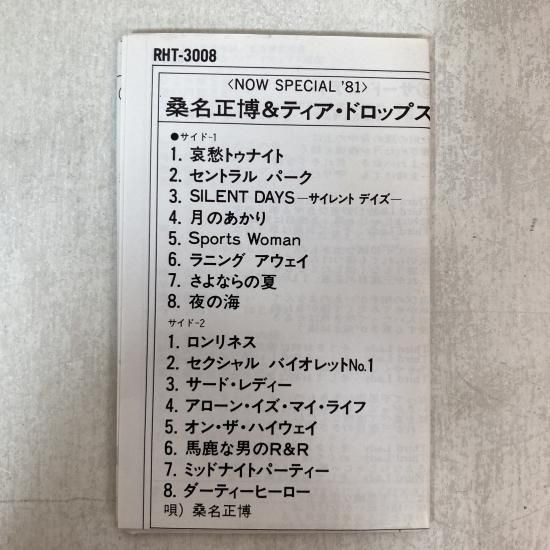 RHT-3008
〈NOW SPECIAL '81〉
桑名正博&ティア・ドロップス
●サイド-1
1. 哀愁トゥナイト
2. セントラル パーク
3. SILENT DAYS—サイレント デイズ—
4. 月のあかり
5. Sports Woman
6. ラニング アウェイ
7. さよならの夏
8. 夜の海
サイド-2
1. ロンリネス
2. セクシャル バイオレットNo.1
3. サード・レディー
4. アローン・イズ・マイ・ライフ
5. オン・ザ・ハイウェイ
6. 馬鹿な男のR&R
7. ミッドナイトパーティー
8. ダーティーヒーロー
唄) 桑名正博